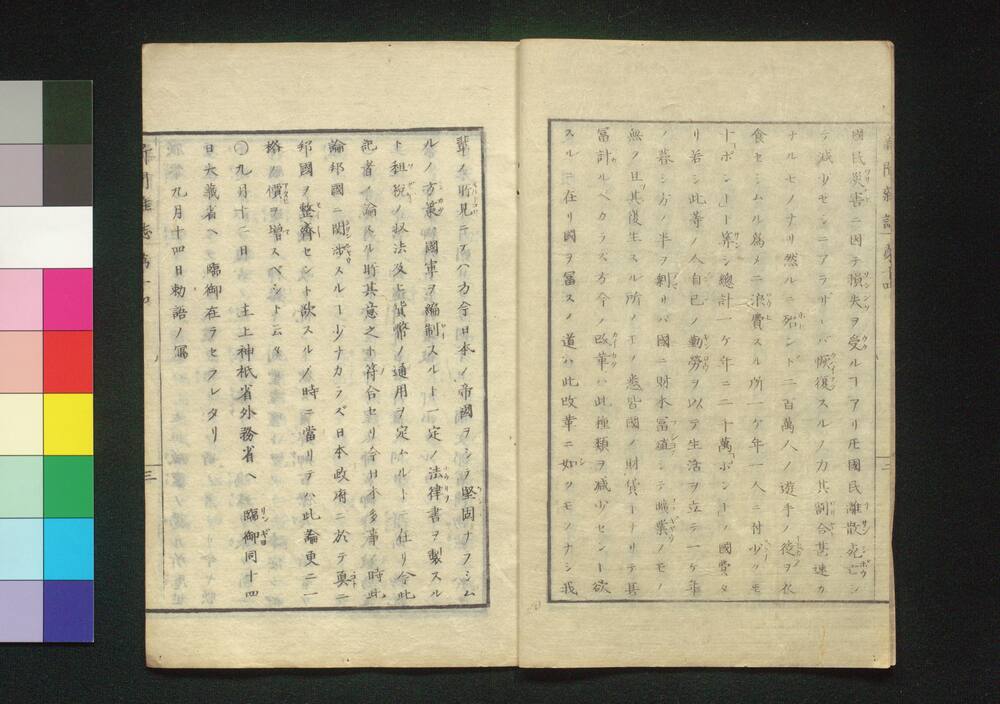 國民災害ニ因テ損失ヲ受ルヿアリ𪜈國民離散死亡シ
テ減少セシニアラザレバ恢復スルノ力其割合甚速カ
ナルモノナリ然ルニ殆ンド二百萬人ノ遊手ノ徒ヲ衣
食セシムル爲メニ浪費スル所一ケ年一人ニ付少クモ
十ポンドト算シ總計一ケ年ニ二千萬ポンドノ國費タ
リ若シ此等ノ人自己ノ勤勞ヲ以テ生活ヲ立テ一ケ年
ノ募シ方ノ半ヲ剰サバ國ニ財本冨殖シテ曠業ノモノ
無ク且其復生スル所ノモノ悉皆國ノ財貨トナリテ其
冨計ルベカラズ方今ノ改革ハ此種類ヲ减少セント欲
スルニ在リ國ヲ冨スノ道ハ此改革ニ如クモノナシ我
輩ノ所見ニテハ方今日本ノ帝國ヲシテ堅固ナラシム
ルノ方策ハ國軍ヲ編制スルト一定ノ法律書ヲ製スル
ト租税ノ収法及ヒ貨幣ノ通用ヲ定ムルトニ在リ今此
記者ノ論スル所其意之ト符合セリ今日本多事ノ時此
論邦國ニ関渉スルヿ少ナカラズ日本政府ニ於テ真ニ
邦國ヲ整齊セント欲スルノ時ニ當リテハ此論更ニ一
格ノ價ヲ增スベシト云々
〇九月十二日 主上神祇省外務省ヘ 臨御同十四
日大藏省ヘ 臨御在ラセラレタリ
九月十四日勅語ノ寫
新聞雜誌 第十四
二
新聞雜誌 第十四
三